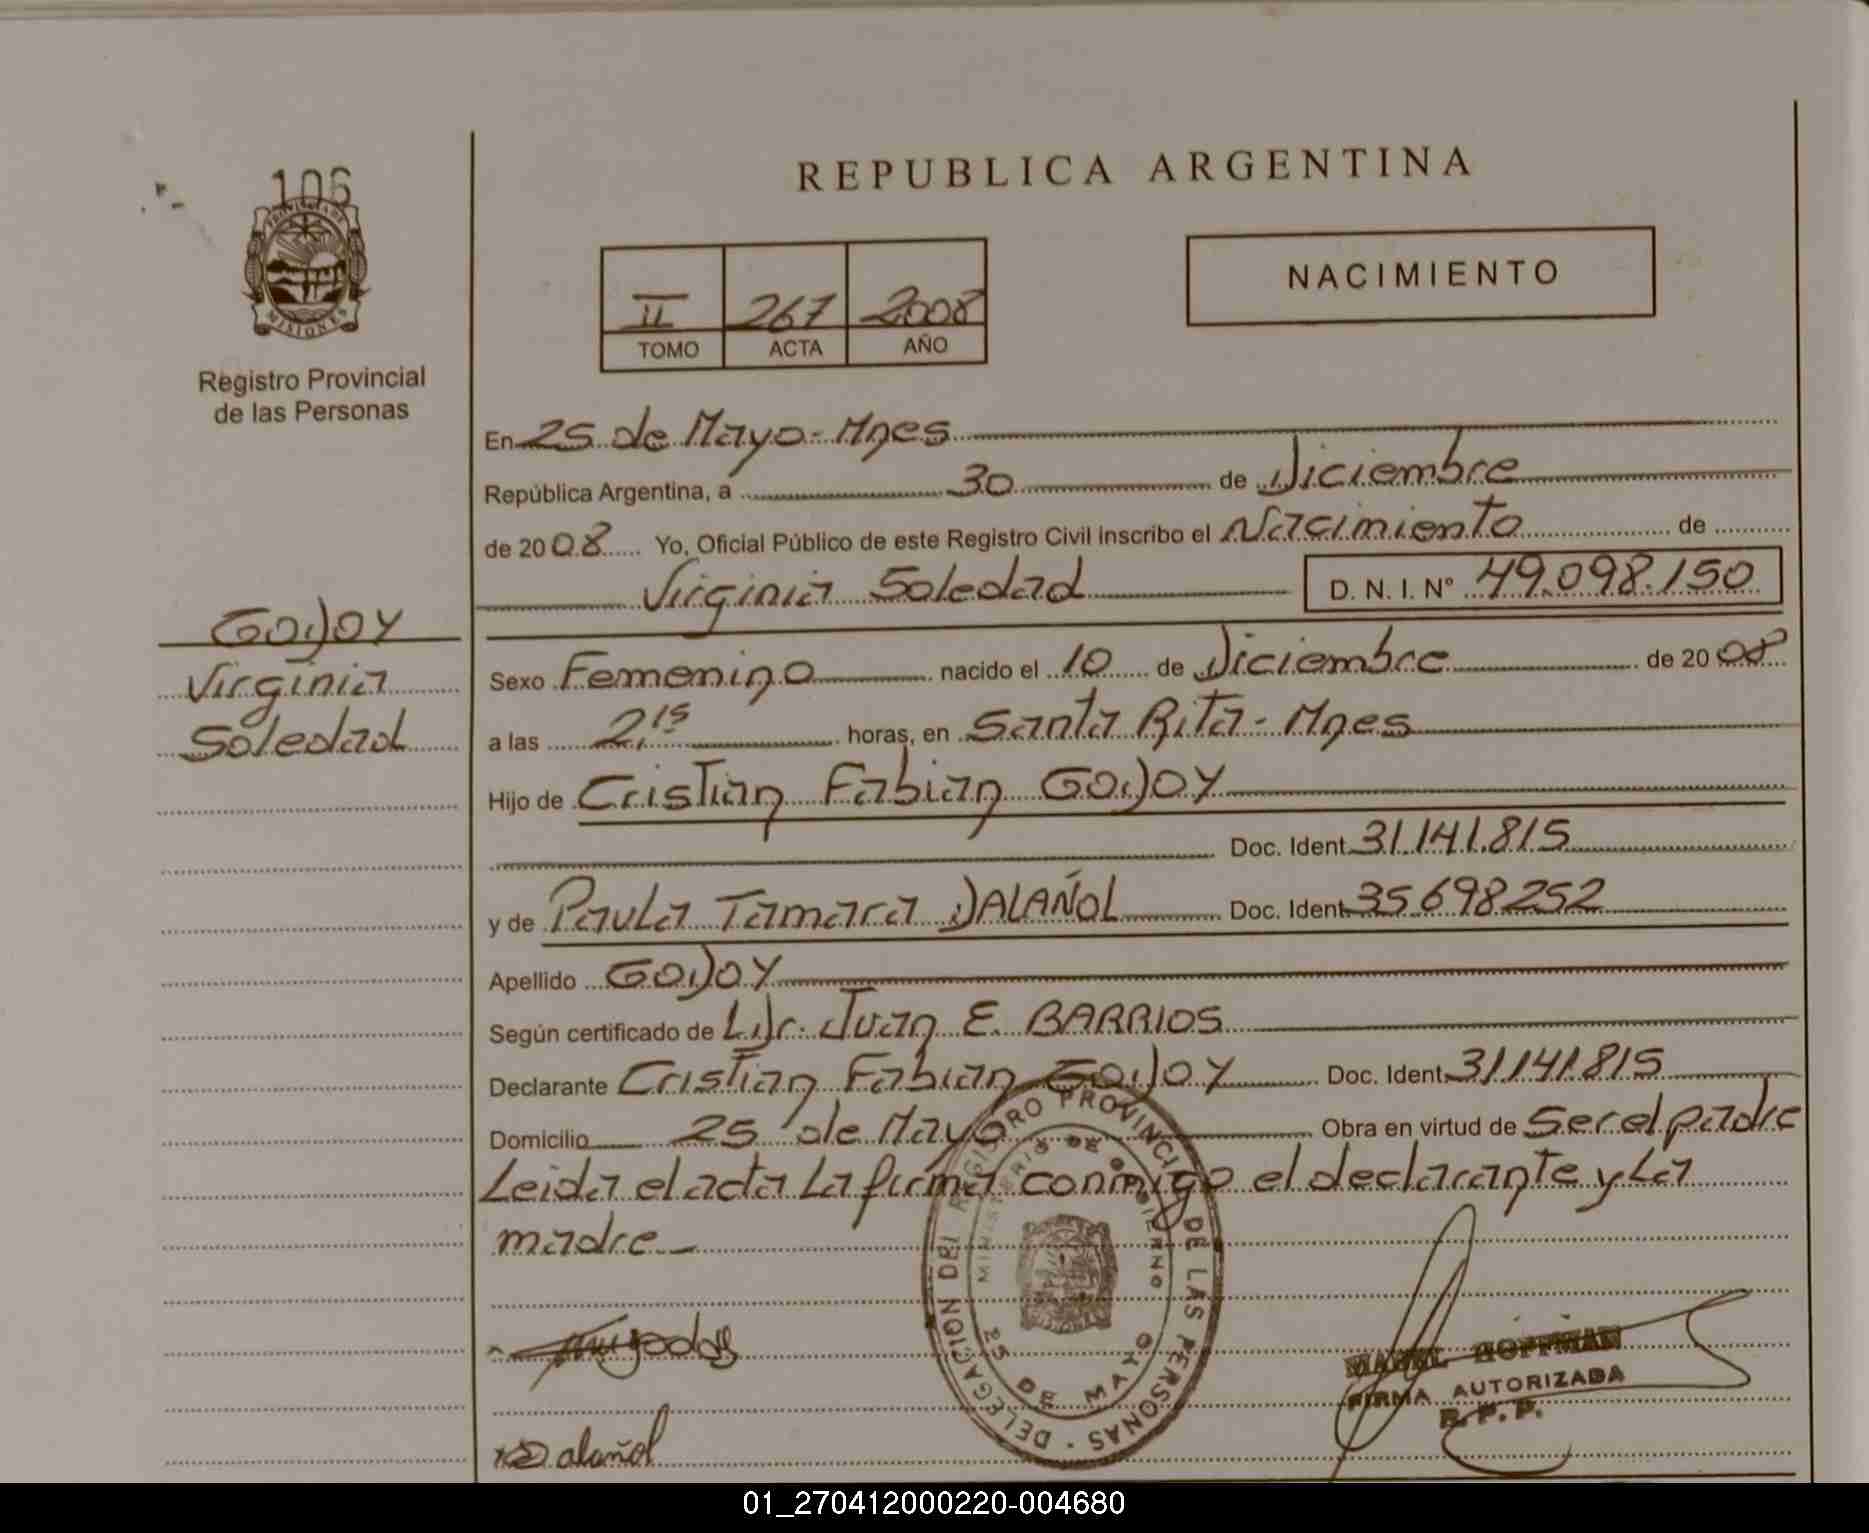 REPUBLICA ARGENTINA
106
PROVINCIA DE
MISIONES
Registro Provincial
de las Personas
II 267 2008
TOMO ACTA AÑO
NACIMIENTO
En 25 de Mayo - Mnes
República Argentina, a 30 de Diciembre
de 2008 Yo, Oficial Público de este Registro Civil inscribo el Nacimiento de
Virginia Soledad D. N. I. N° 49.098.150
GODOY
Virginia
Soledad
Sexo Femenino nacido el 10 de Diciembre de 2008
a las 2,15 horas, en Santa Rita - Mnes
Hijo de Cristian Fabian GODOY
Doc. Ident. 31.141.815
y de Paula Tamara DALAÑOL Doc. Ident. 35698252
Apellido GODOY
Según certificado de L. Dr. Juan E. BARRIOS
Declarante Cristian Fabian GODOY Doc. Ident. 31141815
Domicilio 25 de Mayo Obra en virtud de Ser el padre
Leida el acta la firma conmigo el declarante y la
madre -
DELEGACION DEL REGISTRO PROVINCIAL DE LAS PERSONAS
MINISTERIO DE GOBIERNO
25 DE MAYO
MISIONES
Dalañol
HOFFMAN
FIRMA AUTORIZADA
R. P. P.
01_270412000220-004680